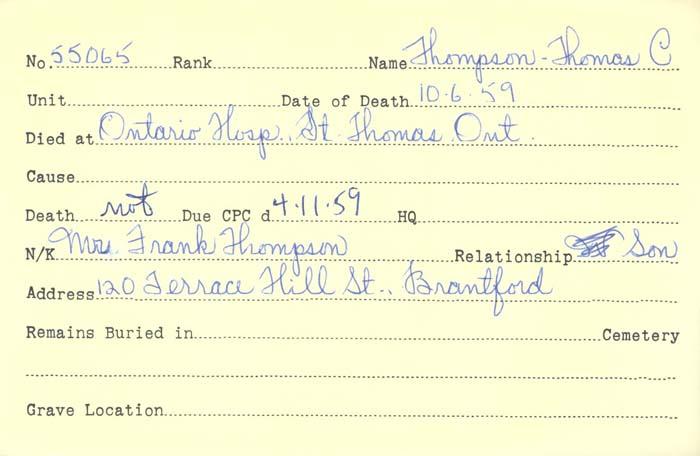 No. 55065 Rank Name Thompson - Thomas C
Unit Date of Death 10.6.59
Died at Ontario Hosp. St. Thomas Ont.
Cause
Death not Due CPC d 4.11.59 HQ
N/K Mrs. Frank Thompson Relationship Son
Address 120 Terrace Hill St., Brantford
Remains Buried in Cemetery
Grave Location